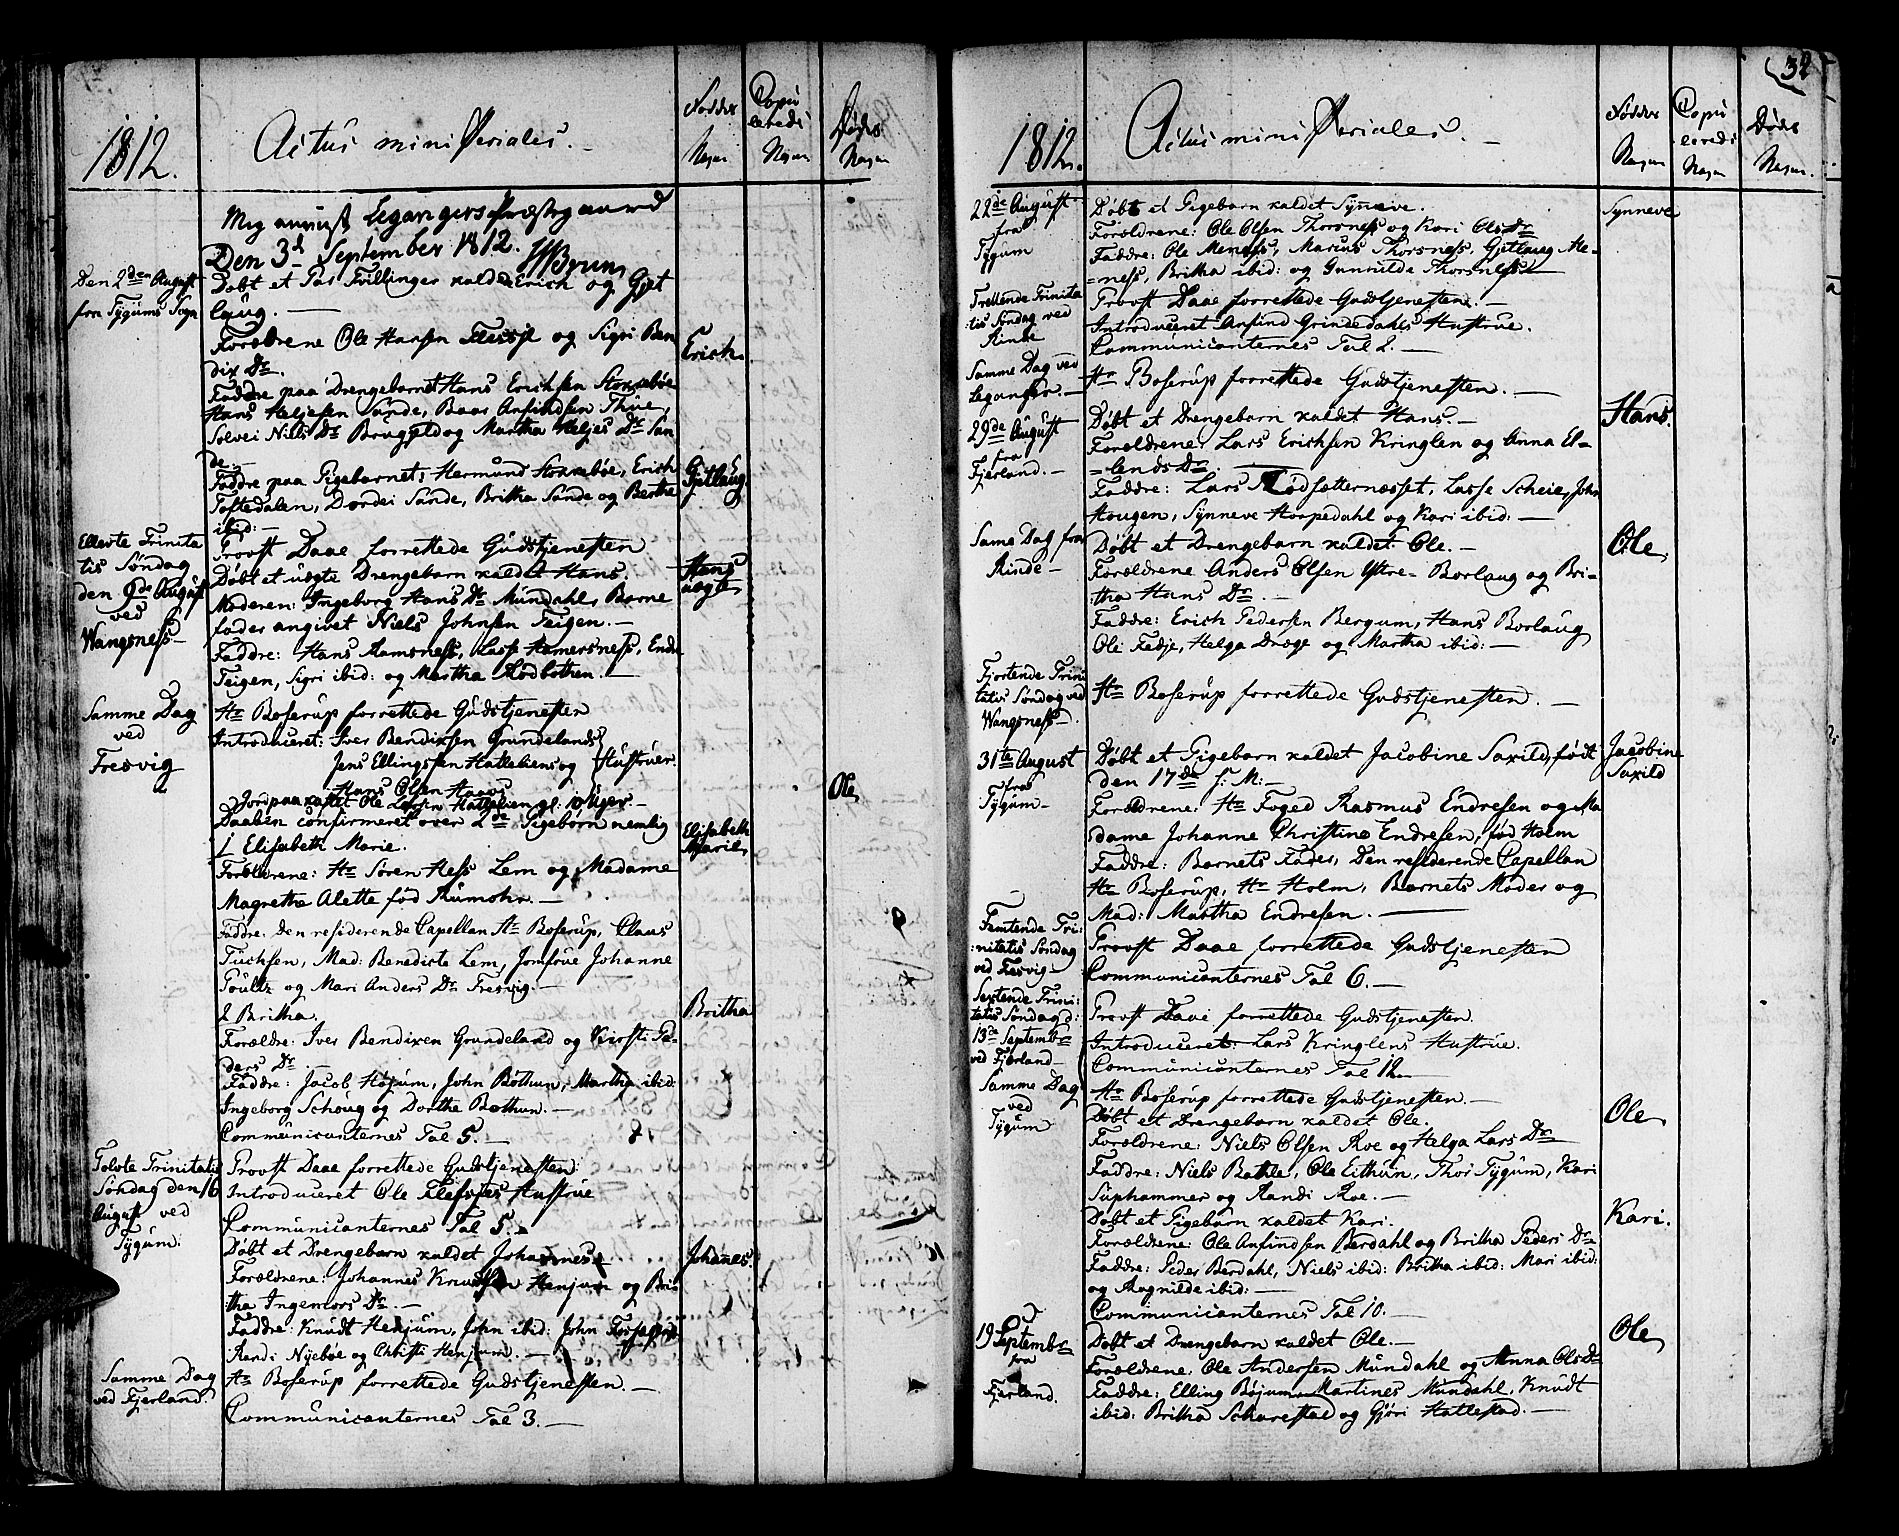 1812.
Actus ministeriales.
Födde
Nagn
Copu
lerede
Nagn
Døde
Nagn
Legangers Præstegaard
Den 3d September 1812. Brun
Den 2den August
fra Tygums Sogn
Døbt et Par Tvillinger kaldet Erich og Gjet
laug. —
Forældrene Ole Hansen Flessje og Sigri Ben
dix Dr.
Erich
Faddre paa Drengebarnet Hans Erichsen Stoksebøe
Hans Heljesen Sande, Baar Anfindsen Thue,
Solvei Niels Dr og Martha Heljes Dr San
de. —
Faddre paa Pigebarnet, Hermund Stoksebøe, Erich
Toftedalen, Dordei Sande, Britha Sande og Berthe
ibid: —
Gjetlaug
Ellevte Trinita
tis Søndag
den 9de August
ved
Wangsness —
Provst Daae forrettede Gudstjenesten
Døbt et uægte Drengebarn kaldet Hans.
Moderen: Ingeborg Hans Dr Mundahl, Barne
fader angivet Niels Johnsen Feigen. —
Faddre: Hans Aamsness, Lasse Hamersness, Endre
Feigen, Sigri ibid: og Martha Rødbotten. —
Hans
uægte
Samme Dag
ved
Fresvig
Hr Boserup forrettede Gudstjenesten
Introduceret: Iver Bendixsen Grundelands
Jens Ellingssen Hattelens og } Hustruer.
Hans Olsen
Jordpaakastet Ole Larsen Hattelien gl. 10 Uger —
Ole
Daaben confirmeret over 2de Pigebørn nemlig
1 Elisabeth Marie.
Elisabeth
Marie
Forældrene: Hr Søren Hess Lem og Madame
Magrethe Alette fød Rumohr. —
Faddre: den residerende Capellan Hr Boserup, Claus
Tuchsen, Mad: Benedicte Lem, Jomfrue Johanne
Poultz og Mari Anders Dr Fresvig. —
2 Britha.
Britha
Forældre: Iver Bendixen Grundeland og Kirsti Pe-
ders Dr. —
Faddre: Jacob Høgum, John Bøthun, Martha ibid:
Ingeborg Schoug og Dorthe Bøthun. —
Communicanternes Tal 5. —
Tolvte Trinitatis
Søndag den 16
August ved
Tygum.
Provst Daae forrettede Gudstjenesten
Introduceret Ole Flessjes Hustrue
Communicanternes Tal 5. —
Døbt et Drengebarn kaldet Johannes
Johanes.
Forældrene: Johannes Knudsen Henjum og Bri-
tha Ingemors Dr. —
Faddre: Knudt Henjum, John ibid: John
Randi Nyebøe og Christi Henjum. —
Samme Dag
ved Fjerland.
Hr Boserup forrettede Gudstjenesten. —
Communicanternes Tal 3. —
32
1812.
Actus ministeriales. —
Fødde
Nagn
Copu
lerede
Nagn
Døde
Nagn.
22de August
fra
Tygum
Døbt et Pigebarn kaldet Synneve.
Synneve
Forældrene: Ole Olsen Thorsness og Kari Ols Dr
Faddre: Ole Meness, Marius Thorsness, Gjetlaug Me-
-ness, Britha ibid: og Gunnilde Thorsness. —
Trettende Trinita
tis Søndag ved
Rinde
Provst Daae forrettede Gudstjenesten. —
Introduceret Anfind Grindedahls Hustrue.
Communicanternes Tal 2. —
Samme Dag ved
Leganger. —
Hr Boserup forrettede Gudstjenesten. —
29de August
fra
Fjerland. —
Døbt et Drengebarn kaldet Hans. —
Hans.
Forældrene: Lars Erichsen Kringlen og Anna El-
-lends Dr. —
Faddre: Lars Rødsætternesset, Lasse Scheie, John
Hougen, Synneve Hoopedahl og Kari ibid: —
Same Dag fra
Rinde —
Døbt et Drengebarn kaldet Ole. —
Ole.
Forældrene Anders Olsen Yttre- Borlaug og Bri-
tha Hans Dr. —
Faddre: Erich Pedersen Bergum, Hans Borlaug
Ole Fedje, Helga Drage og Martha ibid: —
Fjortende Trini
tatis Søndag ved
Wangsness —
Hr Boserup forrettede Gudstjenesten. —
31te August
fra
Tygum —
Døbt et Pigebarn kaldet Jacobine Saxild, født
den 17de f: M: —
Jacobine
Saxild
Forældrene: Hr Foged Rasmus Endresen og Ma
dame Johanne Christine Endresen, fød Holm
Faddre: Barnets Fader, Den residerende Capellan
Hr Boserup, Hr Holm, Barnets Moder og
Mad: Martha Endresen. —
Femtende Tri-
nitatis Søndag
ved Fresvig —
Provst Daae forrettede Gudstjenesten
Communicanternes Tal 6. —
Sextende Trini-
tatis Søndag d:
13de Septembr
ved Fjerland —
Provst Daae forrettede Gudstjenesten.
Introduceret: Lars Kringlens Hustrue.
Communicanternes Tal 12. —
Samme Dag
ved
Tygum
Hr Boserup forrettede Gudstjenesten. —
Døbt et Drengebarn kaldet Ole.
Ole
Forældrene: Niels Olsen Roe og Helga Lars Dr
Faddre: Niels Bahle, Ole Eithun, Thor Tygum, Kari
Suphammer og Randi Roe. —
Døbt et Pigebarn kaldet Kari.
Kari.
Forældrene: Ole Anfindsen Berdahl og Britha Peders Dr
Faddre: Peder Berdahl, Niels ibid: Britha ibid: Mari ibid:
og Ragnilde ibid: —
Communicanternes Tal 10. —
19 Septembr
fra
Fjerland.
Døbt et Drengebarn kaldet Ole. —
Ole
Forældrene: Ole Andersen Mundahl og Anna Ols Dr
Faddre: Elling Bøjum, Martines Mundahl, Knudt
ibid: Britha Scharestad og Gjøri Hattestad. —